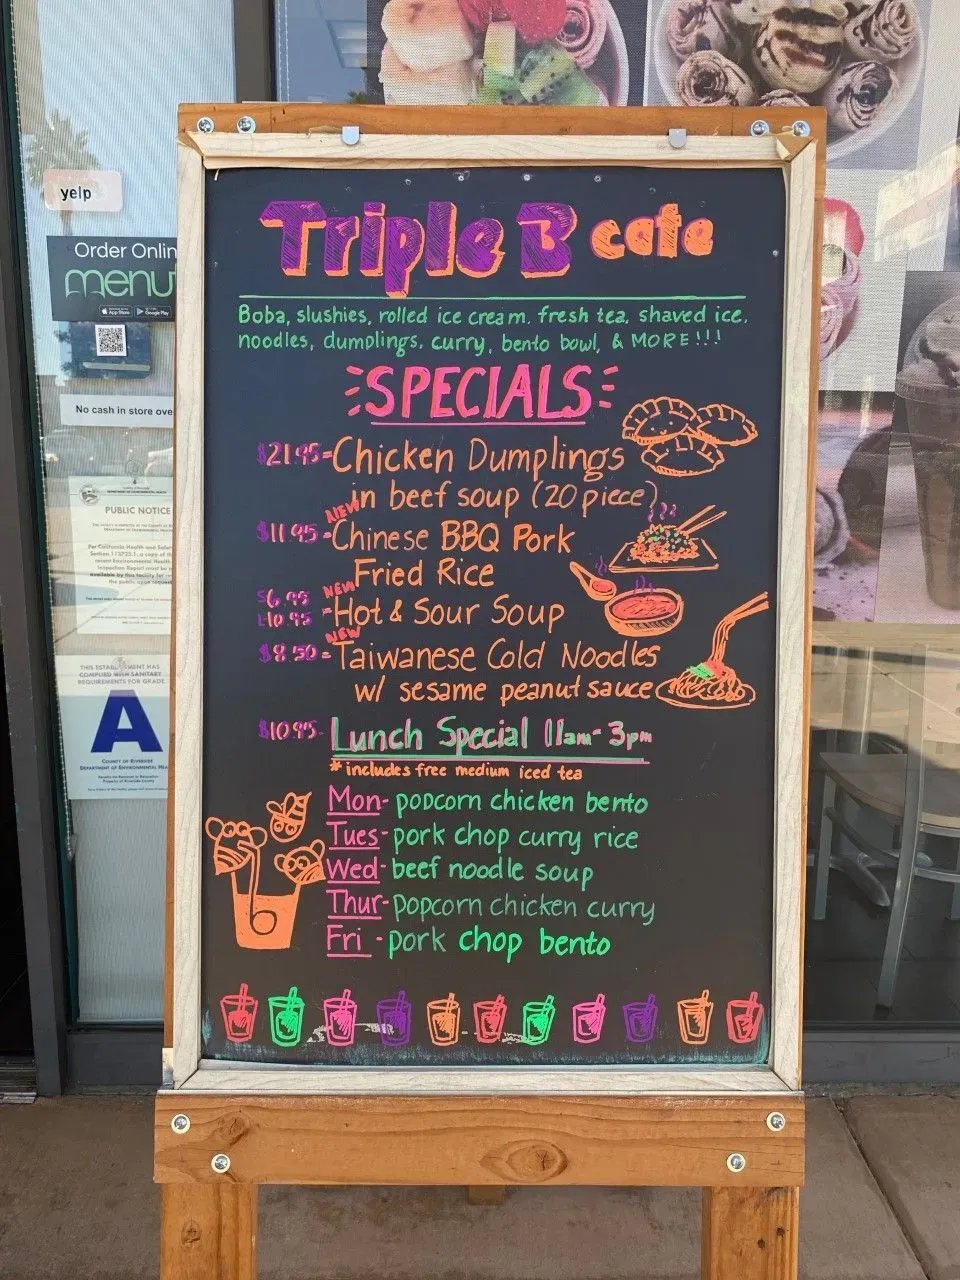 yelp
Order Onlin
menu
App Store
Google Play
No cash in store ove
PUBLIC NOTICE
Per California Health and Safe
THIS ESTABLISHMENT HAS
COMPLIED WITH SANITARY
REQUIREMENTS FOR GRADE
A
COUNTY OF RIVERSIDE
DEPARTMENT OF ENVIRONMENTAL HEA
Triple B cafe
Boba, slushies, rolled ice cream, fresh tea, shaved ice,
noodles, dumplings, curry, bento bowl, & MORE!!!
SPECIALS
$21.95-Chicken Dumplings
in beef soup (20 piece)
NEW
$11.95-Chinese BBQ Pork
Fried Rice
NEW
$6.95
10.95 -Hot & Sour Soup
NEW
$8.50-Taiwanese Cold Noodles
w/ sesame peanut sauce
$10.95- Lunch Special 11am-3pm
* includes free medium iced tea
Mon- popcorn chicken bento
Tues- pork chop curry rice
Wed- beef noodle soup
Thur- popcorn chicken curry
Fri - pork chop bento